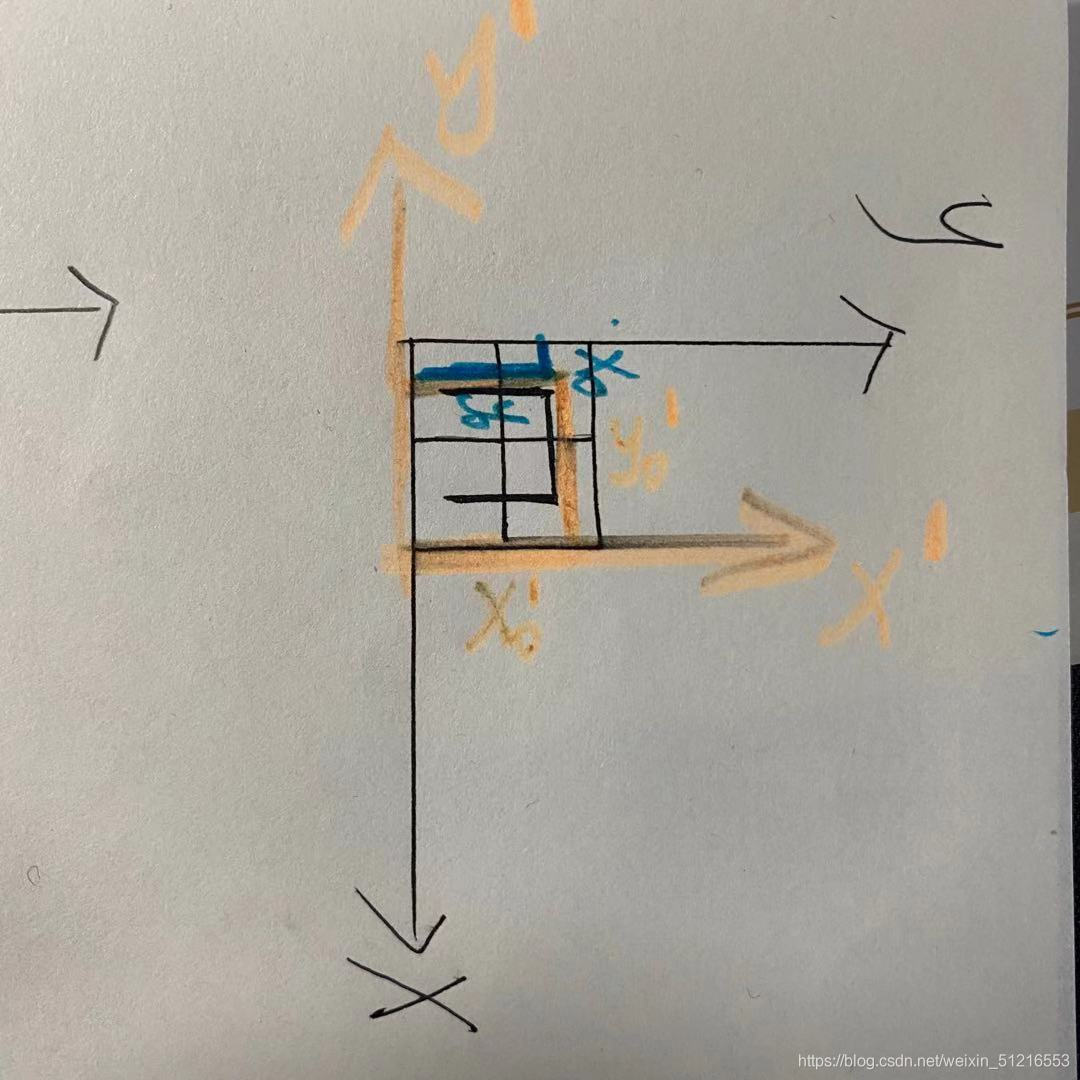 y'
y
x₀
y₀
y₀'
x'
x₀'
x
https://blog.csdn.net/weixin_51216553